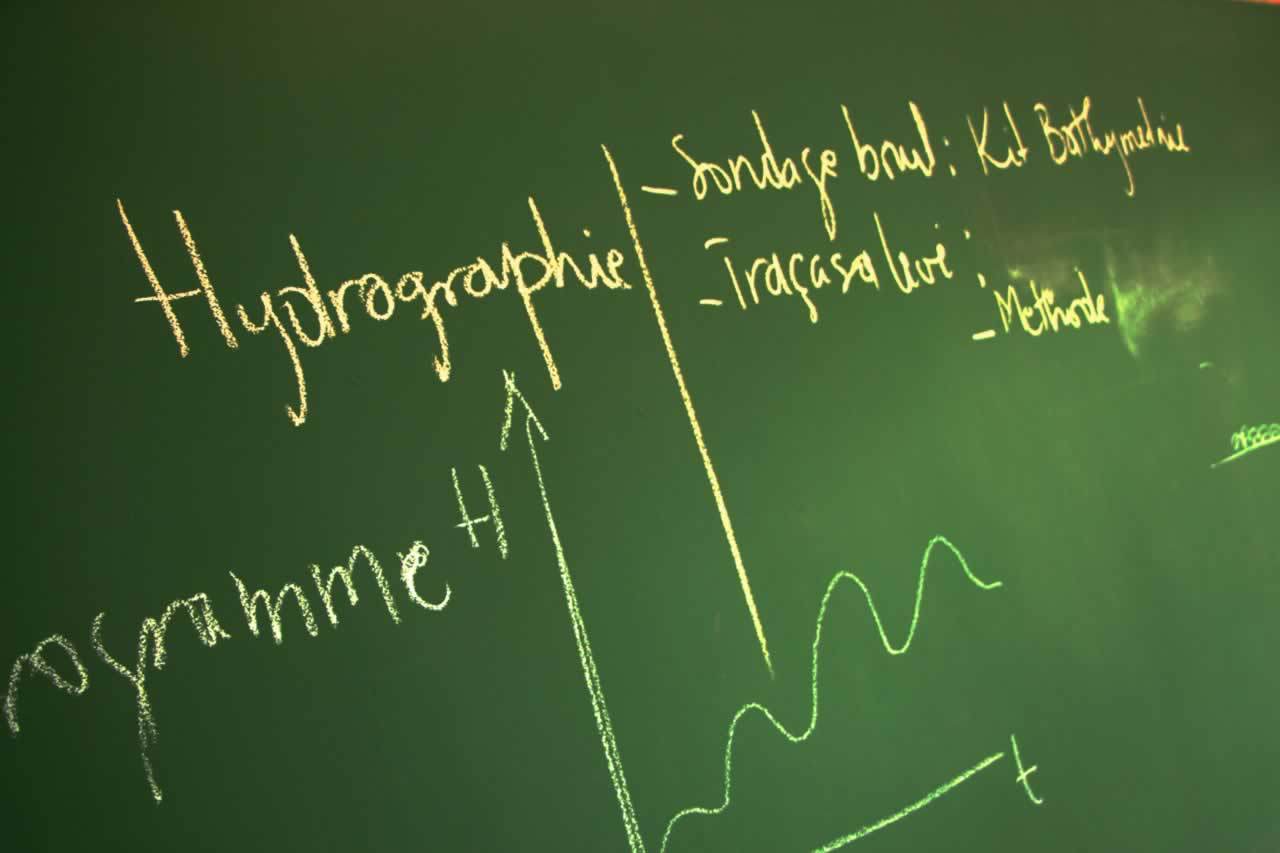 Hydrographie
- Sondage brut : Kit Bathymetrie
- Traçasa levé :
- Methode
rogramme
H
t